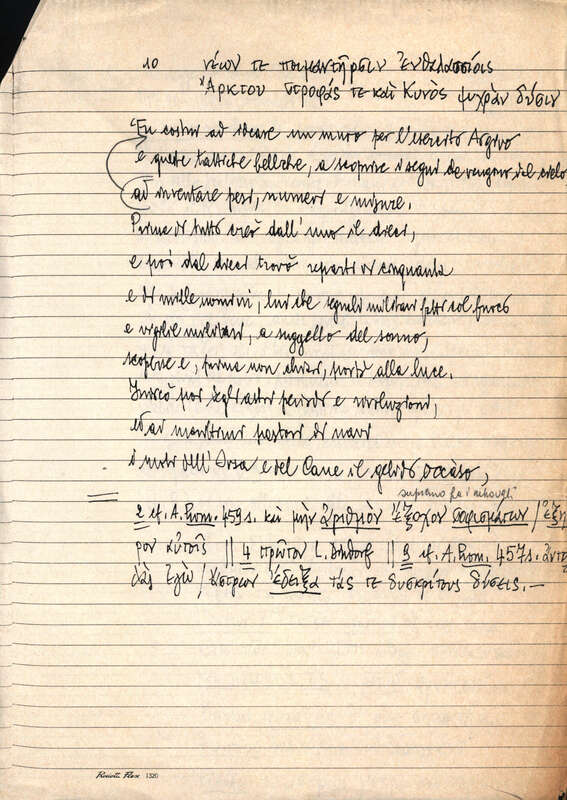 10 νέων τε ποιμαντῆρσιν ἐνθαλασσίοις
Ἄρκτου στροφάς τε καὶ Κυνὸς ψυχρὰν δύσιν
"Fu costui ad ideare un muro per l'esercito Argivo
e queste tattiche belliche, a scoprire i segni che vengono dal cielo
ad inventare pesi, numeri e misure.
Primo di tutti creò dall'uno il dieci,
e poi dal dieci trovò reparti di cinquanta
e di mille uomini, lui che segnali militari fatti col fuoco
e vigilie militari, a suggello del sonno,
scoperse e, prima non chiari, portò alla luce.
Insegnò poi degli astri periodi e rivoluzioni,
ed ai
pastori di navi
i moti dell'Orsa e del Cane il gelido occàso,
supremo fra i
2 cf. A. Prom. 459 s. καὶ μὴν ἀριθμὸν ἔξοχον σοφισμάτων / ἐξηῦ
ρον αὐτοῖς || 4 πρῶτον L. Dindorf || 9 cf. A. Prom. 457 s.
ἐγὼ / ἄστρων ἔδειξα τάς τε δυσκρίτους δύσεις. —
Flex 1320